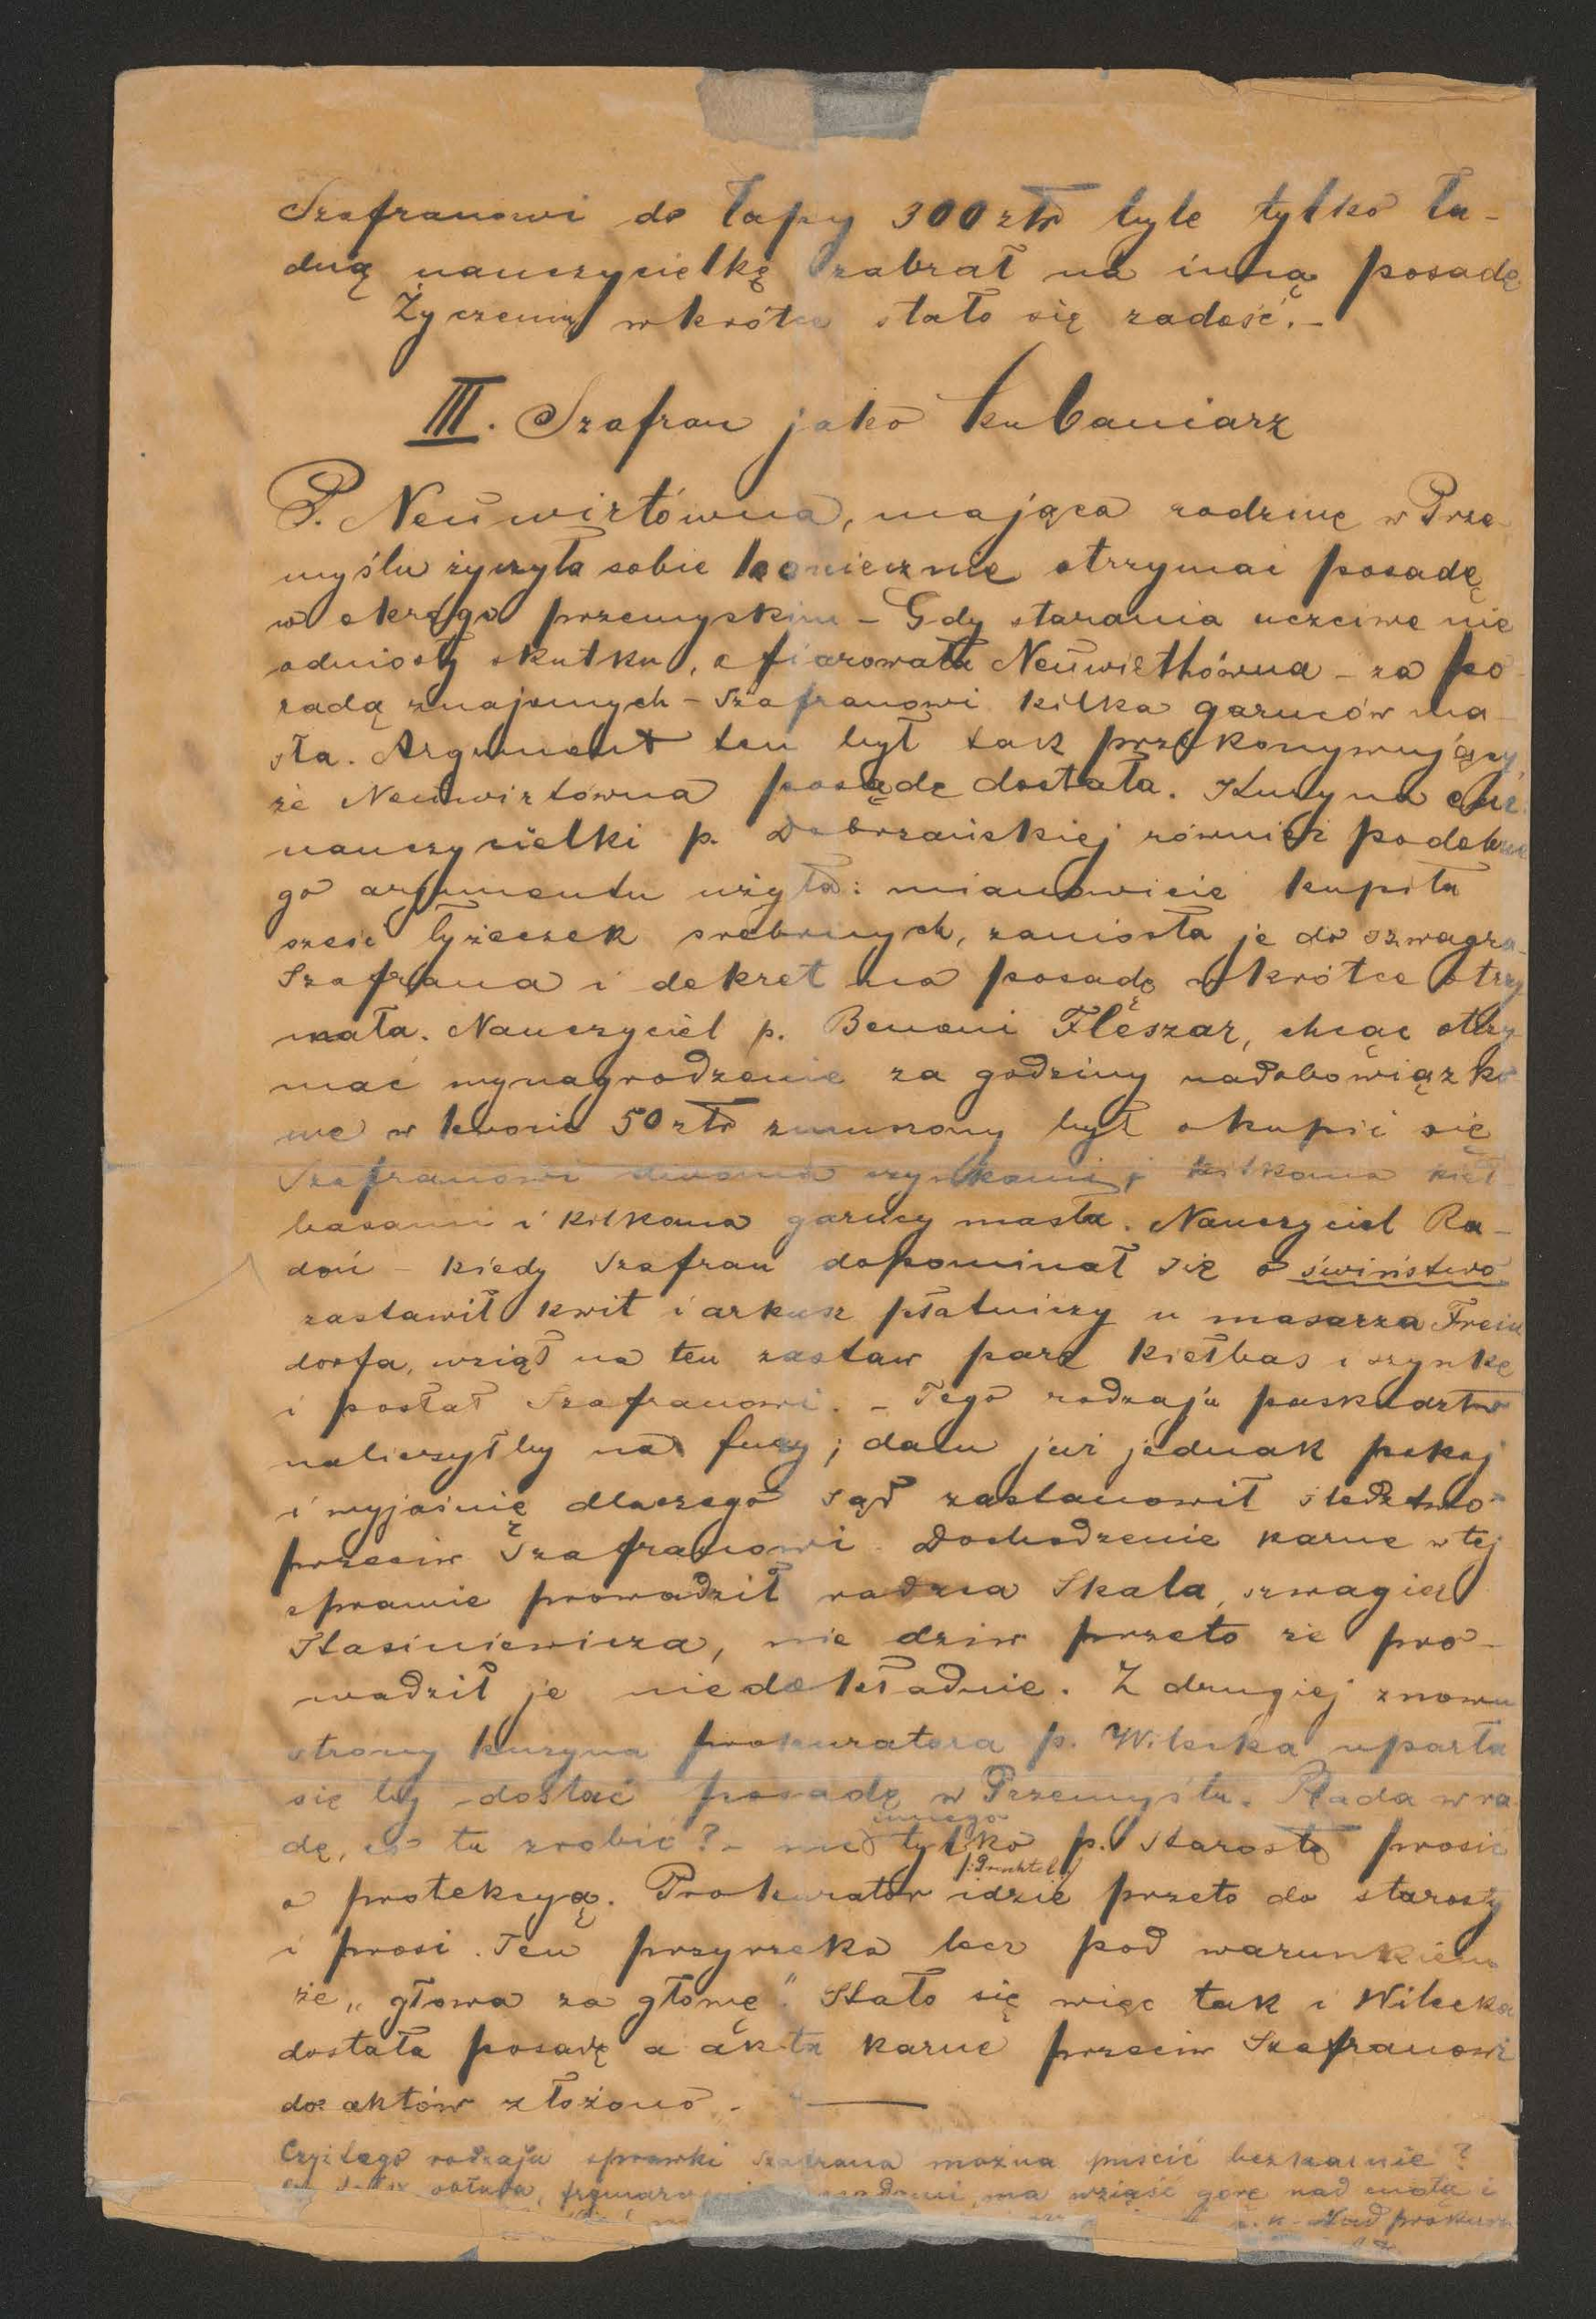 Szafranowi do łapy 300 złr byle tylko ła-
dną nauczycielkę zabrał na inną posadę
Życzeniu wkrótce stało się zadość. –
III. Szafran jako kubaniarz
P. Neuwirtówna, mająca rodzinę w Prze
myślu życzyła sobie koniecznie otrzymać posadę
w okręgu przemyskim – Gdy starania uczciwe nie
odniosły skutku, ofiarowała Neuwirthówna – za po
radą znajomych – Szafranowi kilka garnców ma-
sła. Argument ten był tak przekonywujący,
że Neuwirtówna posadę dostała. Kuzyna
nauczycielki p. Dobrzańskiej również podobne
go argumentu użyła: mianowicie kupiła
sześć łyżeczek srebrnych, zaniosła je do szwagra
Szafrana i dekret na posadę wkrótce otrzy
mała. Nauczyciel p. Benoni Fleszar, chcąc otrzy-
mać wynagrodzenie za godziny nadobowiązko
we w kwocie 50 złr zmuszony był okupić się
Szafranowi dwoma szynkami, kilkoma kieł
basami i kilkoma garncy masła. Nauczyciel Ra-
doń – kiedy Szafran dopominał się o świństwo
zastawił kwit i arkusz płatniczy u masarza Frein
dorfa, wziął na ten zastaw parę kiełbas i szynkę
i posłał Szafranowi. – Tego rodzaju paskudztw
naliczyłby na fury; dam już jednak pokój
i wyjaśnię dlaczego sąd zastanowił śledztwo
przeciw Szafranowi. Dochodzenie karne w tej
sprawie prowadził radzca Skala, szwagier
Stasiniewicza, nie dziw przeto że pro-
wadził je niedokładnie. Z drugiej znowu
strony kuzyna prokuratora p. Wilecka uparła
się by dostać posadę w Przemyślu. Rada w ra
dę, co tu zrobić? – nic innego tylko p. Starostę prosić
o protekcyą. Prokurator idzie przeto do starosty
i prosi. Ten przyrzeka lecz pod warunkiem
że „głowa za głowę". Stało się więc tak i Wilecka
dostała posadę a akta karne przeciw Szafranowi
do aktów złożono. –
Czyż tego rodzaju sprawki Szafrana można puścić bezkarnie?
obłuda, ma wziąść górę nad cnotą i
c. k. Nad prokura